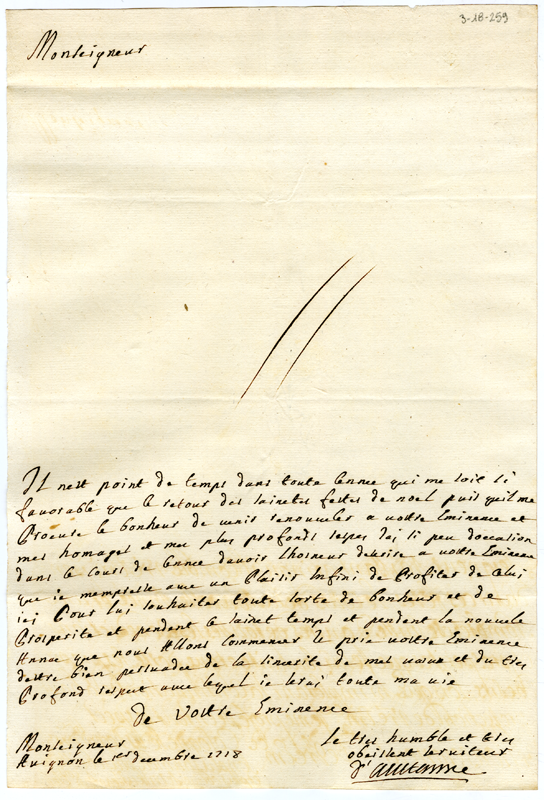 3-18-259
Monseigneur
Il nest point de temps dans toute lennee qui me soit si
favorable que le retour des sainctes festes de noel puis quil me
Procure le bonheur de venir renouveler a vostre Eminence et
mes homages et mes plus profonds respes Jai si peu doccasion
dans le cours de lenne davoir Lhoneur descrire a vostre Eminence
que ie mempresse avec un Plaisir Infini de Profiter de Celui
ici Pour lui souhaiter toute sorte de bonheur et de
Prosperite et pendent ce sainct temps et pendent la nouvele
Annee que nous Allons commencer Je prie vostre Eminence
destre bien persuadee de la sincerite de mes vœux et du tres
Profond respect avec lequel ie serai toute ma vie
De Vostre Eminence
Monseigneur
Avignon le 1er decembre 1718
Le tres humble et tres
obeissent serviteur